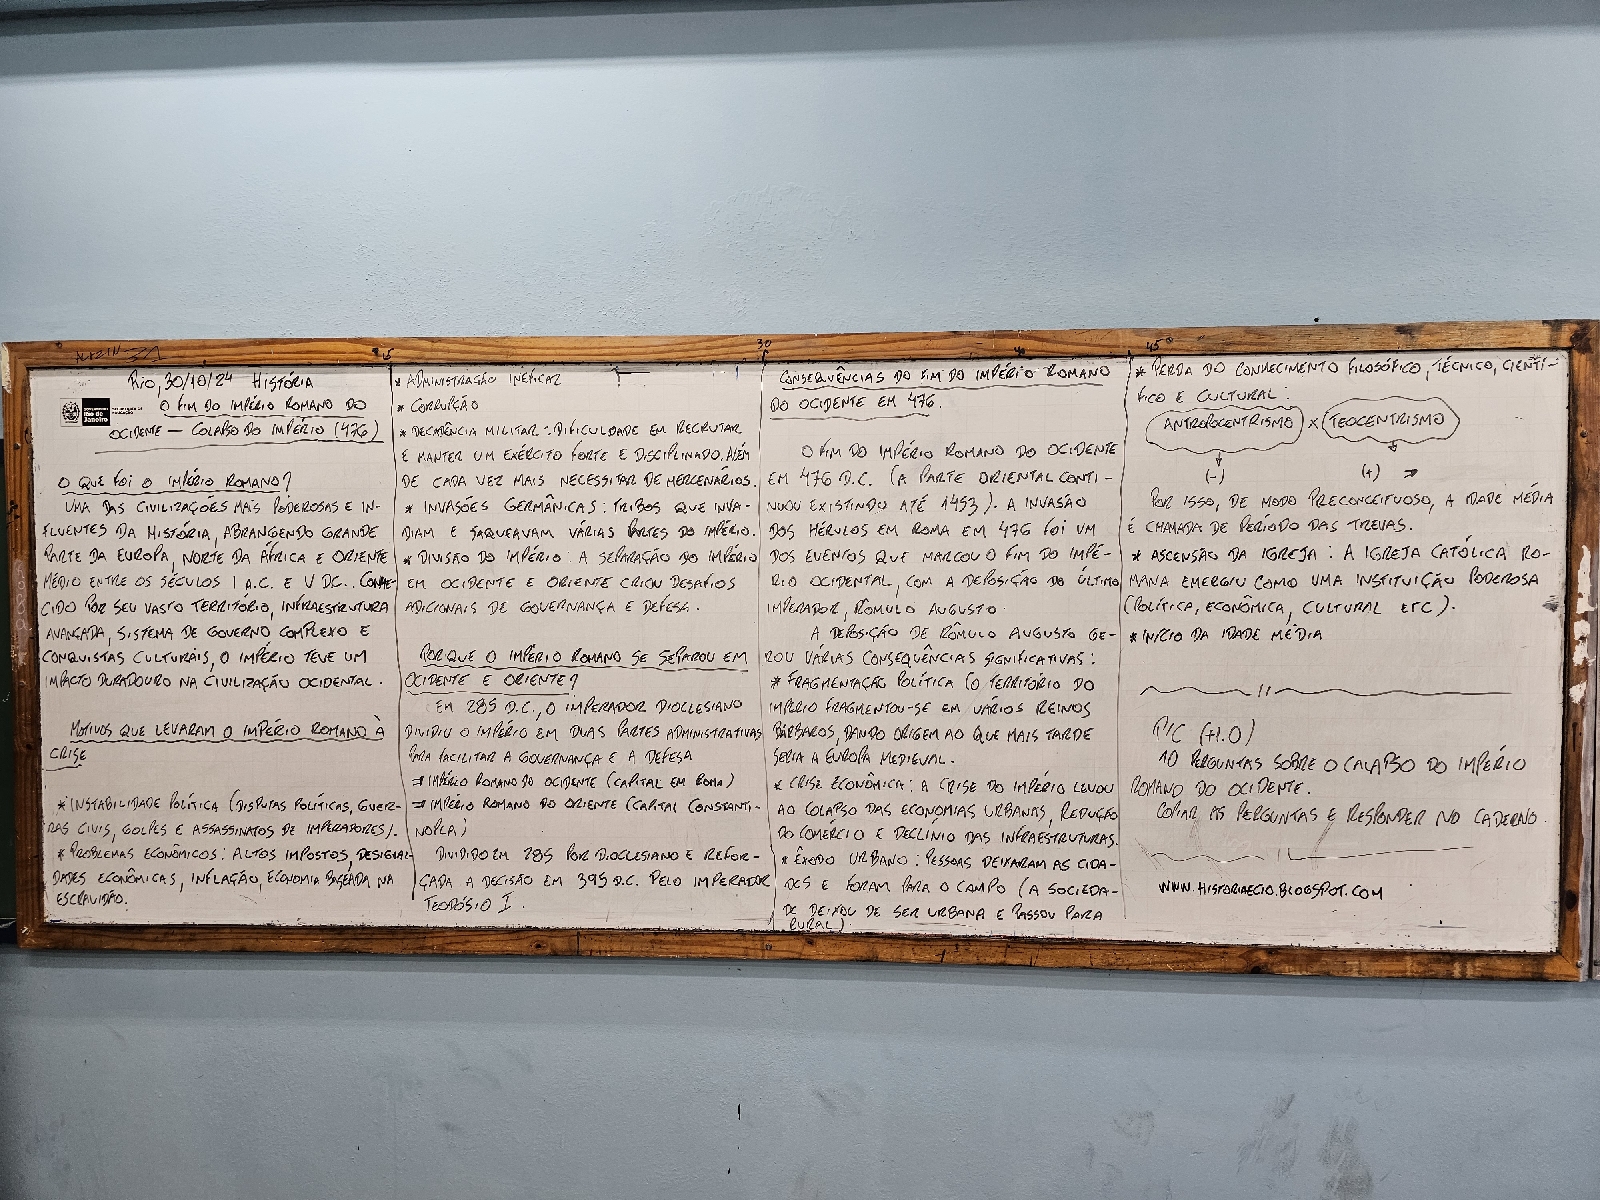 Rio, 30/10/24 HISTÓRIA
O FIM DO IMPÉRIO ROMANO DO
OCIDENTE – COLAPSO DO IMPÉRIO (476)
Rio de
Janeiro
O QUE FOI O IMPÉRIO ROMANO?
UMA DAS CIVILIZAÇÕES MAIS PODEROSAS E IN-
FLUENTES DA HISTÓRIA, ABRANGENDO GRANDE
PARTE DA EUROPA, NORTE DA ÁFRICA E ORIENTE
MÉDIO ENTRE OS SÉCULOS I A.C. E V DC.. CONHE-
CIDO POR SEU VASTO TERRITÓRIO, INFRAESTRUTURA
AVANÇADA, SISTEMA DE GOVERNO COMPLEXO E
CONQUISTAS CULTURAIS, O IMPÉRIO TEVE UM
IMPACTO DURADOURO NA CIVILIZAÇÃO OCIDENTAL.
MOTIVOS QUE LEVARAM O IMPÉRIO ROMANO À
CRISE
* INSTABILIDADE POLÍTICA (DISPUTAS POLÍTICAS, GUER-
RAS CIVIS, GOLPES E ASSASSINATOS DE IMPERADORES).
* PROBLEMAS ECONÔMICOS: ALTOS IMPOSTOS, DESIGUAL-
DADES ECONÔMICAS, INFLAÇÃO, ECONOMIA BASEADA NA
ESCRAVIDÃO.
* ADMINISTRAÇÃO INEFICAZ
* CORRUPÇÃO
* DECADÊNCIA MILITAR: DIFICULDADE EM RECRUTAR
E MANTER UM EXÉRCITO FORTE E DISCIPLINADO. ALÉM
DE CADA VEZ MAIS NECESSITAR DE MERCENÁRIOS.
* INVASÕES GERMÂNICAS: TRIBOS QUE INVA-
DIAM E SAQUEAVAM VÁRIAS PARTES DO IMPÉRIO.
* DIVISÃO DO IMPÉRIO: A SEPARAÇÃO DO IMPÉRIO
EM OCIDENTE E ORIENTE CRIOU DESAFIOS
ADICIONAIS DE GOVERNANÇA E DEFESA.
POR QUE O IMPÉRIO ROMANO SE SEPAROU EM
OCIDENTE E ORIENTE?
EM 285 D.C., O IMPERADOR DIOCLESIANO
DIVIDIU O IMPÉRIO EM DUAS PARTES ADMINISTRATIVAS
PARA FACILITAR A GOVERNANÇA E A DEFESA
⇒ IMPÉRIO ROMANO DO OCIDENTE (CAPITAL EM ROMA)
⇒ IMPÉRIO ROMANO DO ORIENTE (CAPITAL CONSTANTI-
NOPLA)
DIVIDIDO EM 285 POR DIOCLESIANO E REFOR-
ÇADA A DECISÃO EM 395 D.C. PELO IMPERADOR
TEODÓSIO I.
30
CONSEQUÊNCIAS DO FIM DO IMPÉRIO ROMANO
DO OCIDENTE EM 476.
O FIM DO IMPÉRIO ROMANO DO OCIDENTE
EM 476 D.C. (A PARTE ORIENTAL CONTI-
NUOU EXISTINDO ATÉ 1453). A INVASÃO
DOS HÉRULOS EM ROMA EM 476 FOI UM
DOS EVENTOS QUE MARCOU O FIM DO IMPÉ-
RIO OCIDENTAL, COM A DEPOSIÇÃO DO ÚLTIMO
IMPERADOR, RÔMULO AUGUSTO.
A DEPOSIÇÃO DE RÔMULO AUGUSTO GE-
ROU VÁRIAS CONSEQUÊNCIAS SIGNIFICATIVAS:
* FRAGMENTAÇÃO POLÍTICA (O TERRITÓRIO DO
IMPÉRIO FRAGMENTOU-SE EM VÁRIOS REINOS
BÁRBAROS, DANDO ORIGEM AO QUE MAIS TARDE
SERIA A EUROPA MEDIEVAL.
* CRISE ECONÔMICA: A CRISE DO IMPÉRIO LEVOU
AO COLAPSO DAS ECONOMIAS URBANAS, REDUÇÃO
DO COMÉRCIO E DECLÍNIO DAS INFRAESTRUTURAS.
* ÊXODO URBANO: PESSOAS DEIXARAM AS CIDA-
DES E FORAM PARA O CAMPO (A SOCIEDA-
DE DEIXOU DE SER URBANA E PASSOU PARA
RURAL)
45
* PERDA DO CONHECIMENTO FILOSÓFICO, TÉCNICO, CIENTÍ-
FICO E CULTURAL:
ANTROPOCENTRISMO X TEOCENTRISMO
(-) (+) ⇒
POR ISSO, DE MODO PRECONCEITUOSO, A IDADE MÉDIA
É CHAMADA DE PERÍODO DAS TREVAS.
* ASCENSÃO DA IGREJA: A IGREJA CATÓLICA RO-
MANA EMERGIU COMO UMA INSTITUIÇÃO PODEROSA
(POLÍTICA, ECONÔMICA, CULTURAL ETC).
* INÍCIO DA IDADE MÉDIA
P/C (+1.0)
10 PERGUNTAS SOBRE O CALAPSO DO IMPÉRIO
ROMANO DO OCIDENTE.
COPIAR AS PERGUNTAS E RESPONDER NO CADERNO.
WWW.HISTORIAECIO.BLOGSPOT.COM